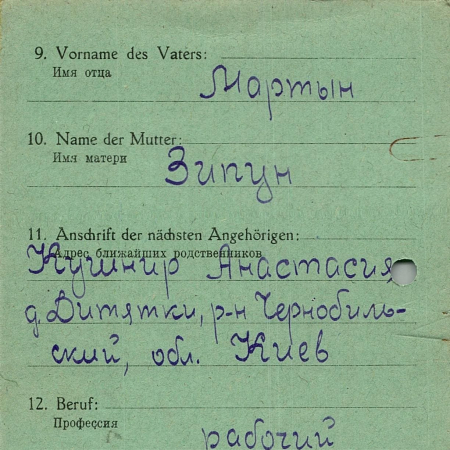 9. Vorname des Vaters:
Имя отца
Мартын
10. Name der Mutter:
Имя матери
Зипун
11. Anschrift der nächsten Angehörigen:
Адрес ближайших родственников
Кушнир Анастасия,
д. Витятки, р-н Чернобиль-
ский, обл. Киев
12. Beruf:
Профессия
рабочий